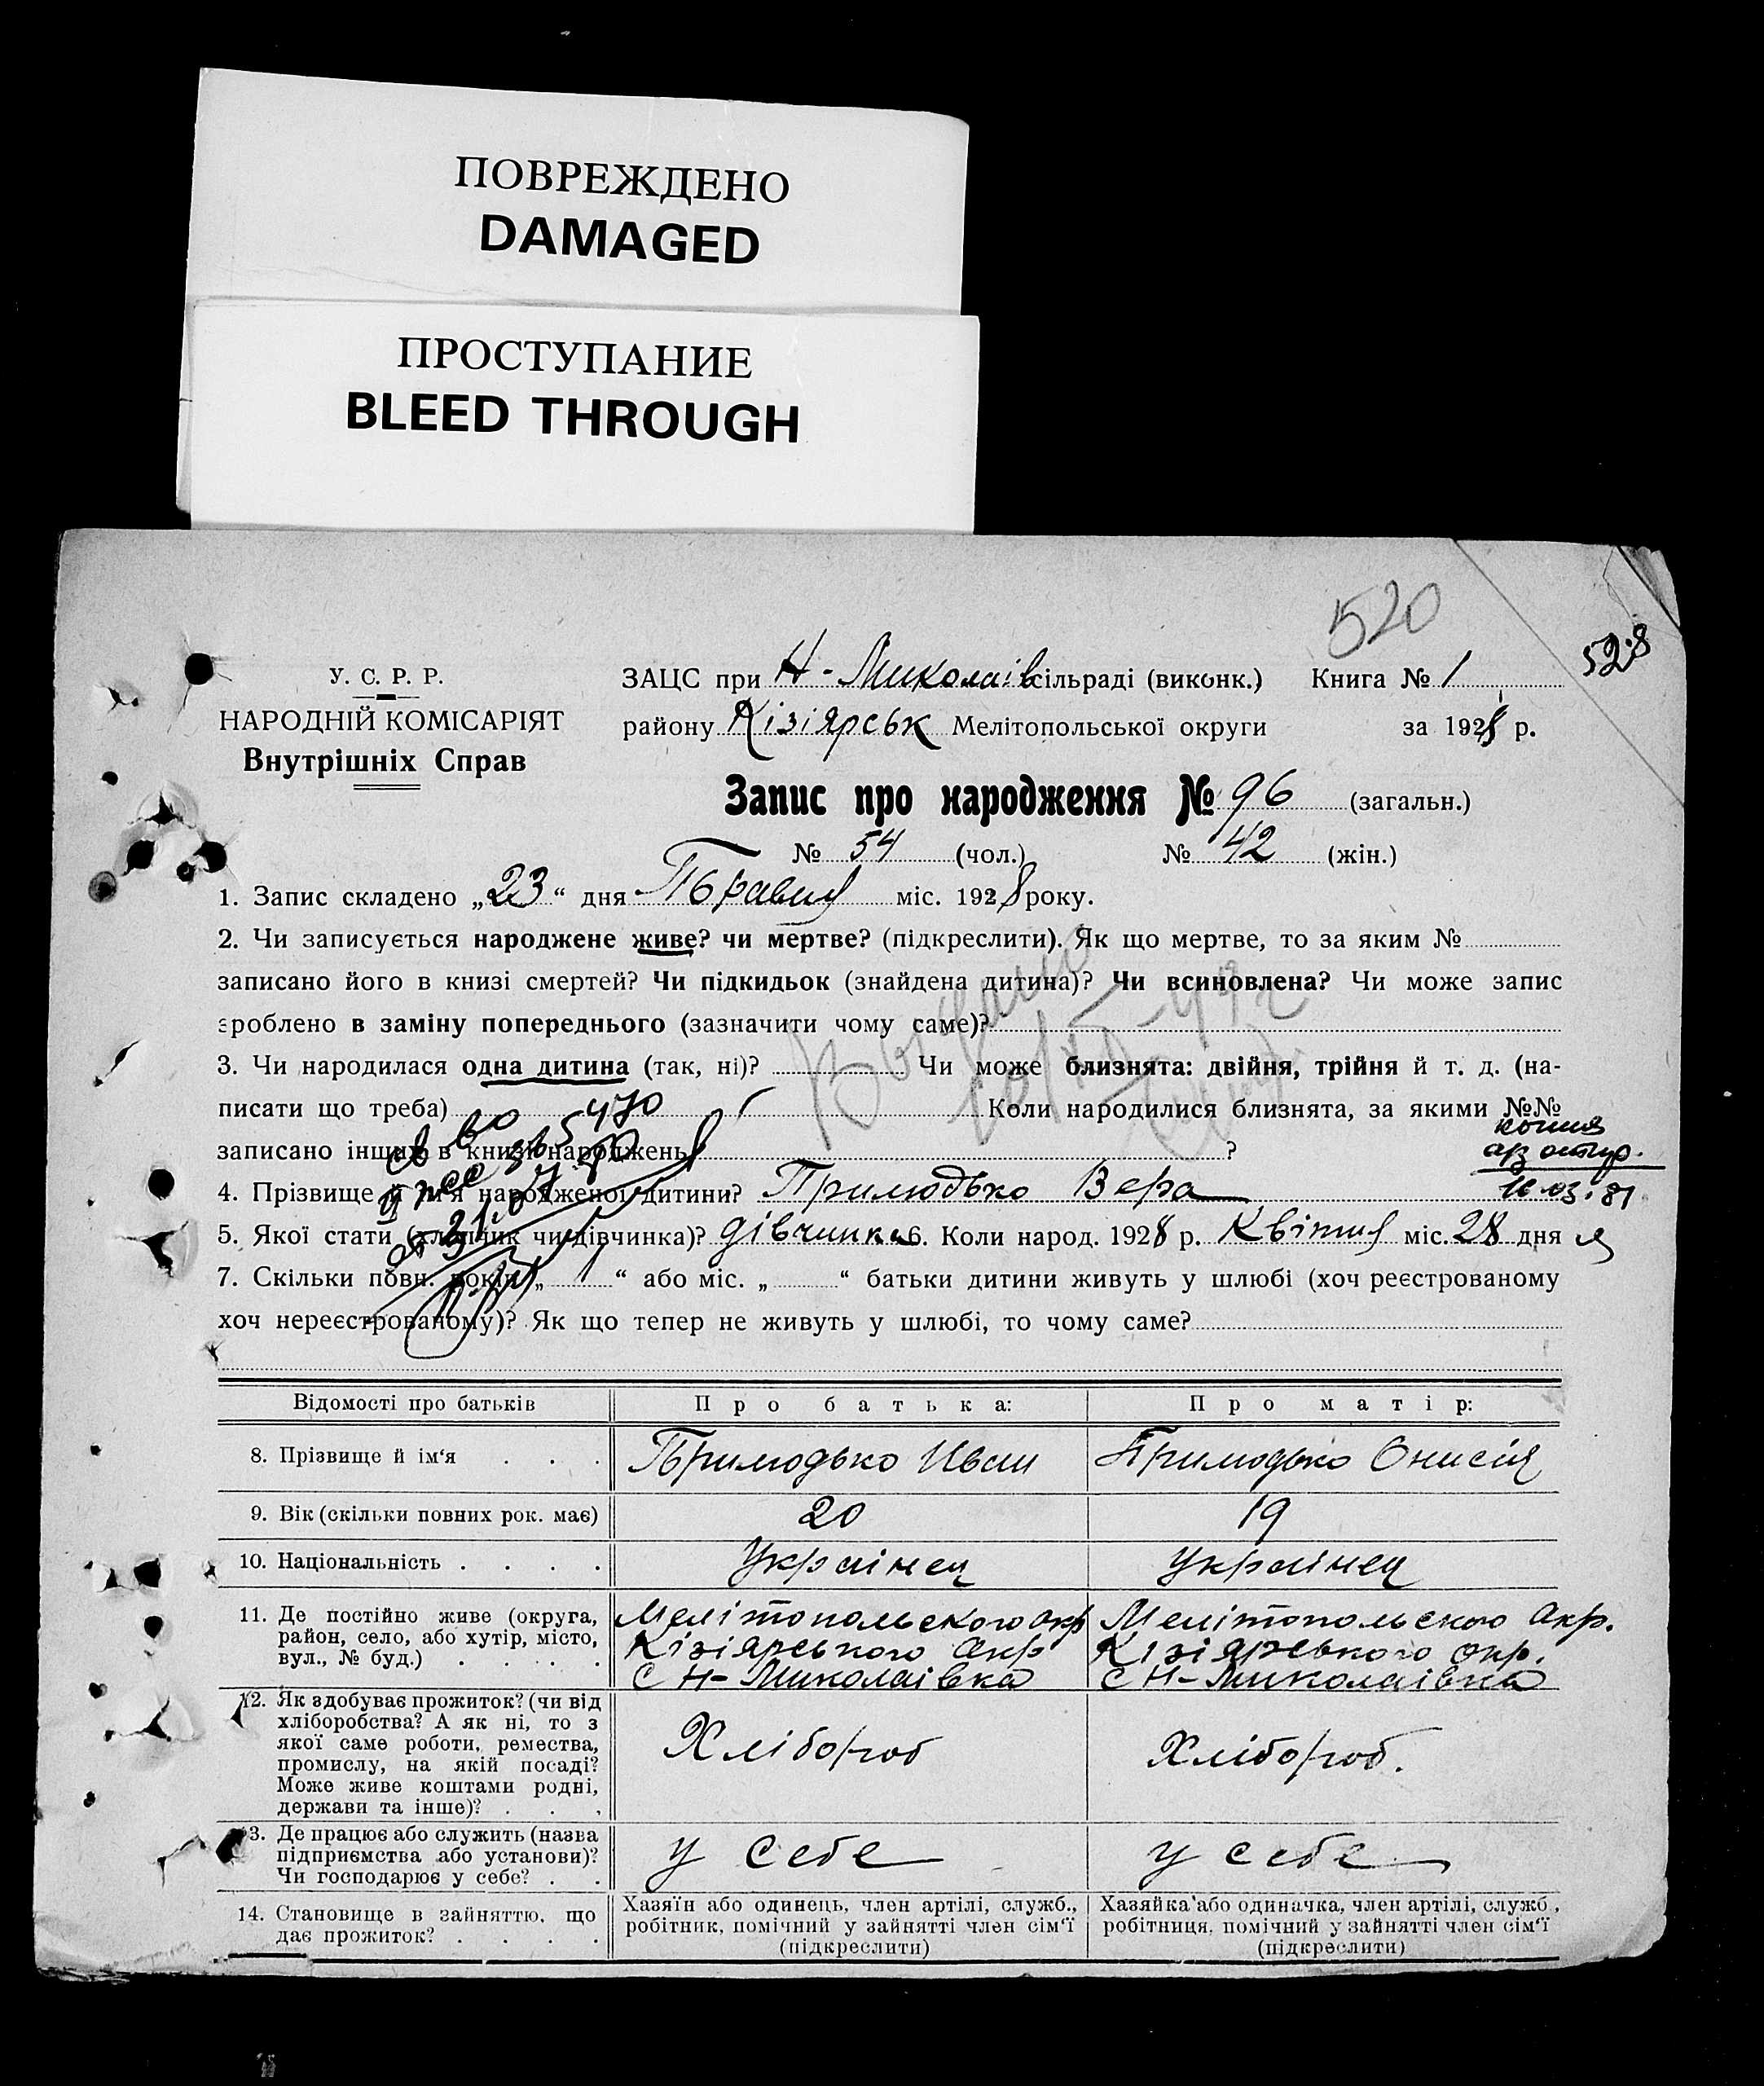 ПОВРЕЖДЕНО
DAMAGED
ПРОСТУПАНИЕ
BLEED THROUGH
520
528
У. С. Р. Р.
НАРОДНІЙ КОМІСАРІЯТ
Внутрішніх Справ
ЗАЦС при Н-Миколаїв сільраді (виконк.) Книга № 1
району Кізіярськ Мелітопольської округи за 1928 р.
Запис про народження № 96 (загальн.)
№ 54 (чол.) № 42 (жін.)
1. Запис складено „23“ дня Травня міс. 1928 року.
2. Чи записується народжене живе? чи мертве? (підкреслити). Як що мертве, то за яким №
записано його в книзі смертей? Чи підкидьок (знайдена дитина)? Чи всиновлена? Чи може запис
зроблено в заміну попереднього (зазначити чому саме)?
3. Чи народилася одна дитина (так, ні)? Чи може близнята: двійня, трійня й т. д. (на-
писати що треба) Коли народилися близнята, за якими №№
записано інших в книзі народжень ?
копия
16.03.81
4. Прізвище й ім'я народженої дитини? Прилюдько Вера
5. Якої стати (хлопчик чи дівчинка)? дівчинка 6. Коли народ. 1928 р. Квітня міс. 28 дня
7. Скільки повн. років „ “ або міс. „ “ батьки дитини живуть у шлюбі (хоч реєстрованому
хоч нереєстрованому)? Як що тепер не живуть у шлюбі, то чому саме?
Відомості про батьків Про батька: Про матір:
8. Прізвище й ім'я . . . Прилюдько Иван Прилюдько Онисія
9. Вік (скільки повних рок. має) 20 19
10. Національність . . . . Українец Українец
11. Де постійно живе (округа, район, село, або хутір, місто, вул., № буд.) . . . .
Мелітопольского окр Мелітопольского Окр.
Кізіярського окр Кізіярського окр.
С Н-Миколаівка С Н-Миколаівка
12. Як здобуває прожиток? (чи від
хліборобства? А як ні, то з
якої саме роботи, ремества,
промислу, на якій посаді?
Може живе коштами родні,
держави та інше)? . . .
Хлібороб Хлібороб.
13. Де працює або служить (назва
підприємства або установи)?
Чи господарює у себе? . .
у себе у себе
14. Становище в зайняттю, що
дає прожиток? . . . .
Хазяїн або одинець, член артілі, служб.,
робітник, помічний у зайнятті член сім'ї
(підкреслити)
Хазяйка або одиначка, член артілі, служб.,
робітниця, помічний у зайнятті член сім'ї
(підкреслити)